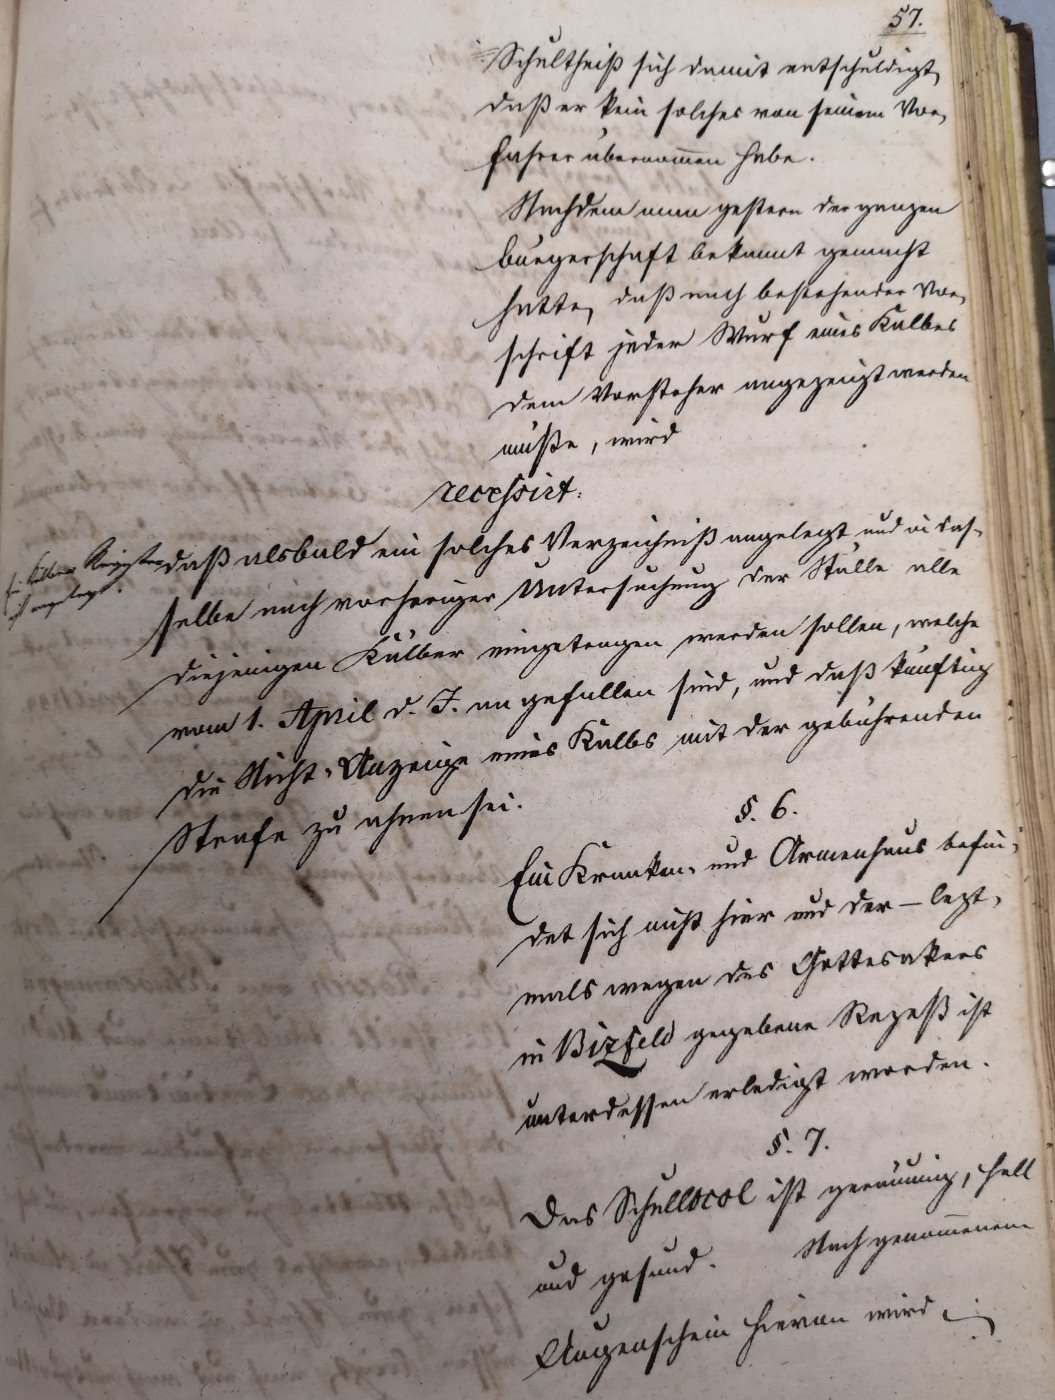 57.
Schultheiß sich damit entschuldigt,
daß er kein solches von seinem Vor-
fahrer übernom̅en habe.
Nachdem man gestern der ganzen
bürgerschaft bekannt gemacht
hatte, daß nach bestehender Vor-
schrift jeder Wurf eines Kalbes
dem Vorsteher angezeigt werden
müße, wird
recessirt:
daß alsbald ein solches Verzeichniß angelegt und in das-
Ein Kälber Register
ist angelegt.
selbe nach vorheriger Untersuchung der Ställe alle
diejenigen Kälber eingetragen werden sollen, welche
vom 1. April d. J. an gefallen sind, und daß künftig
die Nicht-Anzeige eines Kalbs mit der gebührenden
Strafe zu ahnen sei.
§. 6.
Ein Kranken- und Armenhaus befin-
det sich nicht hier und der – lezt-
mals wegen des Gottesakers
in Bizfeld gegebene Rezeß ist
unterdessen erledigt worden.
§. 7.
Das Schullocal ist geräumig, hell
und gesund. Nach genom̅enem
Augenschein hievon wird